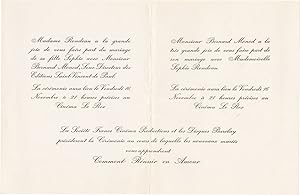 Madame Rondeau a la grande
joie de vous faire part du mariage
de sa fille Sophie avec Monsieur
Bernard Monod, Sous Directeur des
Editions Saint Vincent de Paul.
La cérémonie aura lieu le Vendredi 16
Novembre à 21 heures précises au
Cinéma Le Rex
Monsieur Bernard Monod a la
très grande joie de vous faire part de
son mariage avec Mademoiselle
Sophie Rondeau.
La cérémonie aura lieu le Vendredi 16
Novembre à 21 heures précises au
Cinéma Le Rex
La Société Franco Cinéma Productions et les Disques Barclay
présideront la Cérémonie au cours de laquelle les nouveaux mariés
vous apprendront
Comment Réussir en Amour